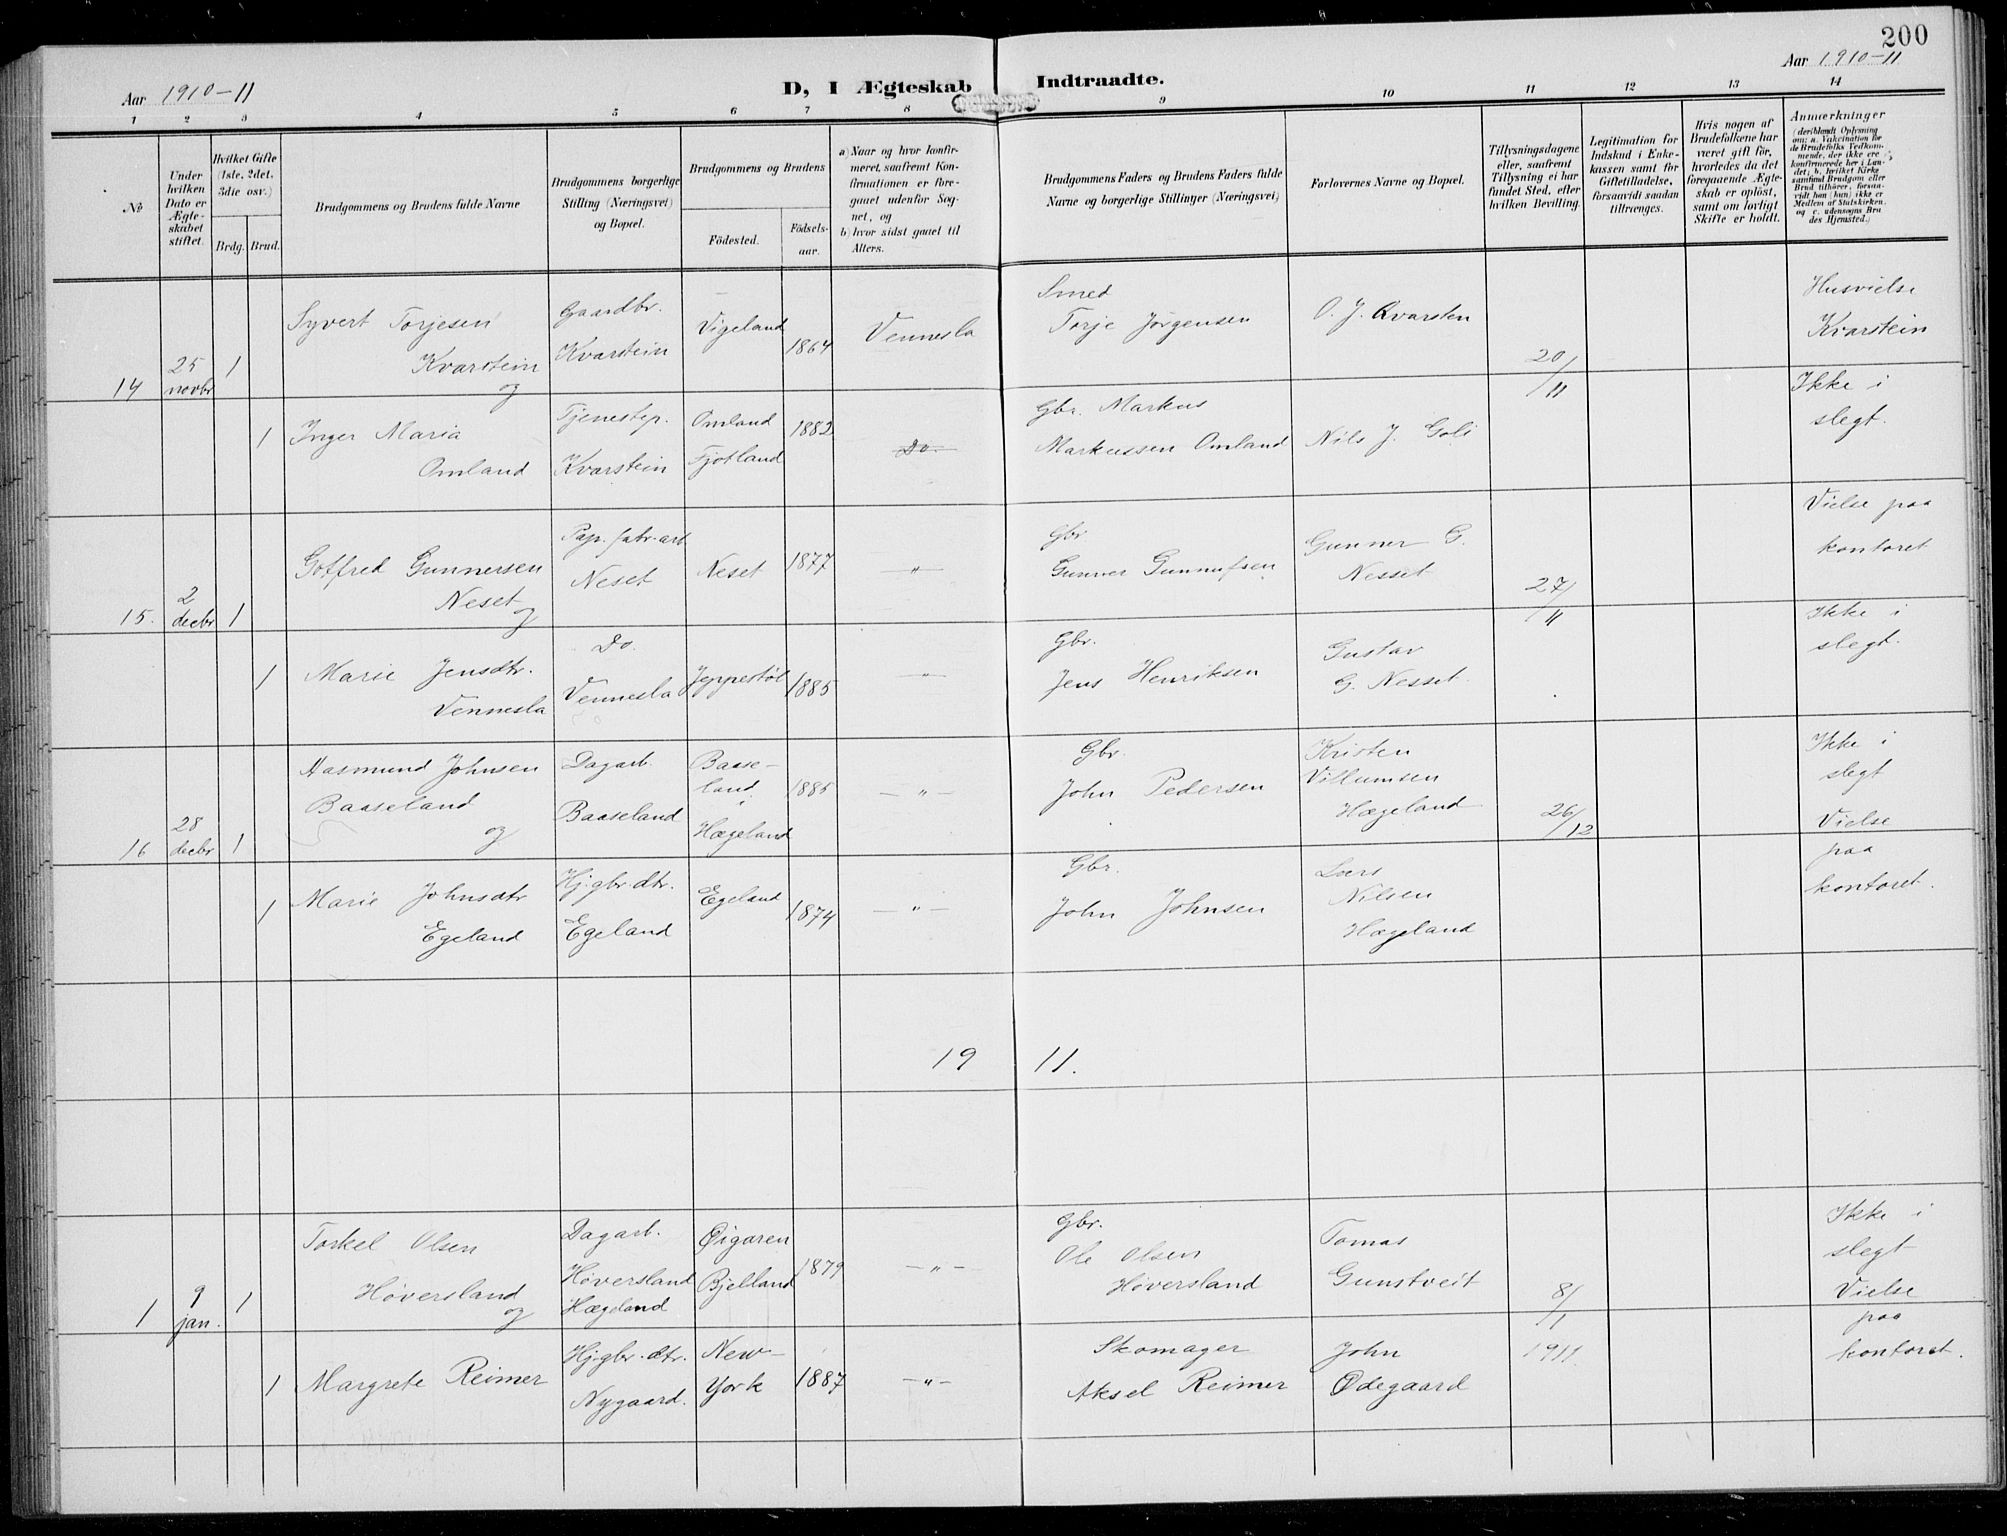 200
Aar 1910-11
D, I Ægteskab Indtraadte.
Aar 1910-11
1 2 3 4 5 6 7 8 9 10 11 12 13 14
№
Under hvilken Dato er Ægteskabet stiftet.
Hvilket Gifte (1ste, 2det, 3die osv.)
Brdg. Brud.
Brudgommens og Brudens fulde Navne
Brudgommens borgerlige Stilling (Næringsvei) og Bopæl.
Brudgommens og Brudens
Fødested.
Fødselsaar.
a) Naar og hvor konfirmeret, saafremt Konfirmationen er foregaaet udenfor Sognet, og
b) hvor sidst gaaet til Alters.
Brudgommens Faders og Brudens Faders fulde Navne og borgerlige Stillinger (Næringsvei)
Forlovernes Navne og Bopæl.
Tillysningsdagene eller, saafremt Tillysning ei har fundet Sted, efter hvilken Bevilling.
Legitimation for Indskud i Enkekassen samt for Giftetilladelse, forsaavidt saadan tiltrænges.
Hvis nogen af Brudefolkene har været gift før, hvorledes da det foregaaende Ægteskab er opløst, samt om lovligt Skifte er holdt.
Anmærkninger
(deriblandt Oplysning om: a. Vakcination for de Brudefolks Vedkommende, der ikke ere konfirmerede her i Landet; b. hvilket Kirkesamfund Brudgom eller Brud tilhører, forsaavidt han (hun) ikke er Medlem af Statskirken, og c. udensogns Brudes Hjemsted.)
14
25 novbr
1
Syvert Torjesen
Kvarstein
og
Gaardbr.
Kvarstein
Vigeland
1864
Vennesla
Smed
Torje Jörgensen
O. J. Kvarsten
20/11
Husvielse
Kvarstein
Ikke i
slegt.
1
Inger Maria
Omland
Tjenestep.
Kvarstein
Omland
Fjotland
1882
Do.
Gbr. Markus
Markussen Omland
Nils J. Goli
15.
2 decbr
1
Gotfred Gunnersen
Neset
og
Pap. fabr. arb
Neset
Neset
1877
"
Gbr
Gunner Gunnufsen
Gunner G.
Nesset
27/11
Vielse paa
kontoret
Ikke i
slegt.
1
Marie Jensdtr.
Vennesla
Do.
Vennesla
Jeppestøl
1885
"
Gbr.
Jens Henriksen
Gustav
G. Nesset.
16
28 decbr
1
Aasmund Johnsen
Baaseland
og
Dagarb.
Baaseland
Baase-
land
i
Hægeland
1885
— " —
Gbr.
John Pedersen
Kristen
Villumsen
Hægeland
26/12
Ikke i
slegt
Vielse
paa
kontoret.
1
Marie Johnsdtr
Egeland
Hj. gbr. dtr.
Egeland
Egeland
1874
— " —
Gbr.
John Johnsen
Lars
Nilsen
Hægeland
19 11.
1
9 jan.
1
Torkel Olsen
Høversland
og
Dagarb.
Høversland
Hægeland
Øigaren
Bjelland
1879
— " —
Gbr.
Ole Olsen
Høversland
Tomas
Gunstveit
8/1
1911
Ikke i
slegt
Vielse
paa
kontoret.
1
Margrete Reimer
Hj. gbr. dtr.
Nygaard.
New-
York
1887
— " —
Skomager
Aksel Reimer
John
Ødegaard